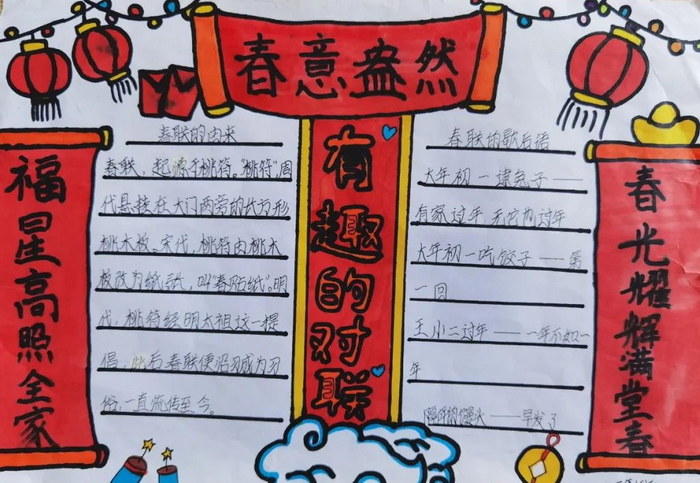 春意盎然
有趣的对联
福星高照全家
春光耀辉满堂春
春联的由来
春联，起源于桃符。"桃符"周
代悬挂在大门两旁的长方形
桃木板。宋代，桃符由桃木
板改为纸，叫"春贴纸"。明
代，桃符经明太祖这一提
倡，此后春联便沿习成为习
俗，一直流传至今。
春联的歇后语
大年初一逮兔子——
有家过年，无它为过年
大年初一吃饺子——第
一回
王小二过年——一年不如一
年
馒头——早发了